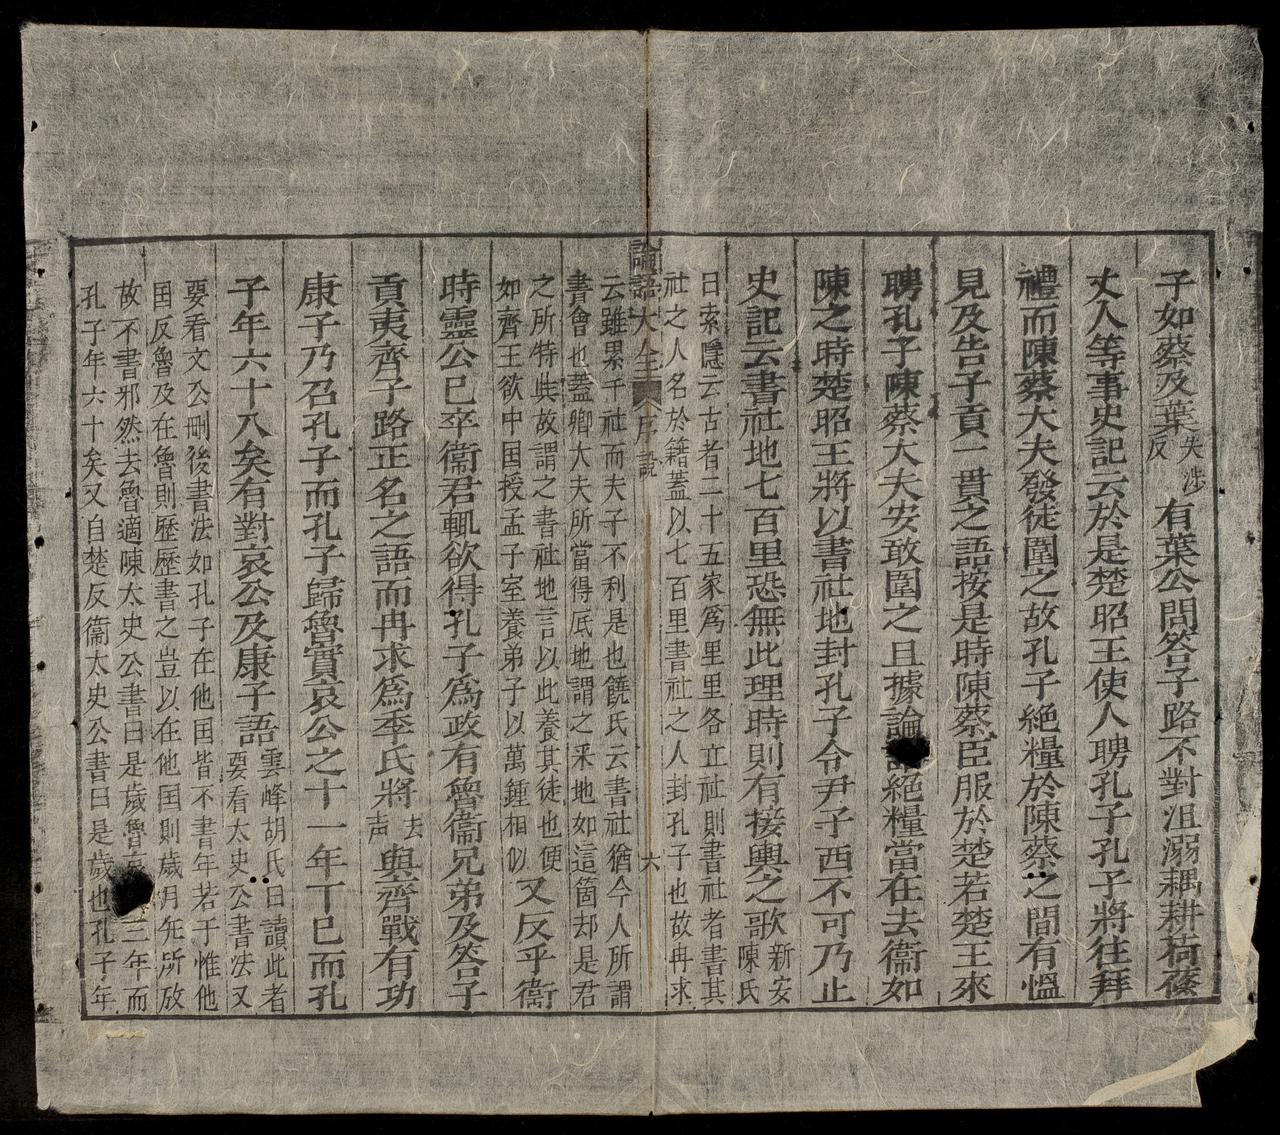 子如蔡及葉失涉反有葉公問答子路不對沮溺耦耕荷蓧
丈人等事史記云於是楚昭王使人聘孔子孔子將往拜
禮而陳蔡大夫發徒圍之故孔子絶糧於陳蔡之間有慍
見及告子貢一貫之語按是時陳蔡臣服於楚若楚王來
聘孔子陳蔡大夫安敢圍之且據論絶糧當在去衞如
陳之時楚昭王將以書社地封孔子令尹子西不可乃止
史記云書社地七百里恐無此理時則有接輿之歌新安
陳氏
日索隱云古者二十五家爲里里各立社則書社者書其
社之人名於籍蓋以七百里書社之人封孔子也故冉求
論語大全 序說 六
云雖累千社而夫子不利是也饒氏云書社猶今人所謂
書會也蓋卿大夫所當得底地謂之采地如這箇却是君
之所特與故謂之書社地言以此養其徒也便
如齊王欲中国授孟子室養弟子以萬鍾相似又反乎衞
時靈公已卒衞君輒欲得孔子爲政有魯衞兄弟及答子
貢夷齊子路正名之語而冉求爲季氏將去声與齊戰有功
康子乃召孔子而孔子歸魯實哀公之十一年丁巳而孔
子年六十八矣有對哀公及康子語雲峰胡氏曰讀此者
要看太史公書法又
要看文公刪後書法如孔子在他国皆不書年若于惟他
国反魯及在魯則歷歷書之豈以在他国則歲月无所放
故不書邪然去魯適陳太史公書曰是歲魯三年而
孔子年六十矣又自楚反衞太史公書曰是歲也孔子年